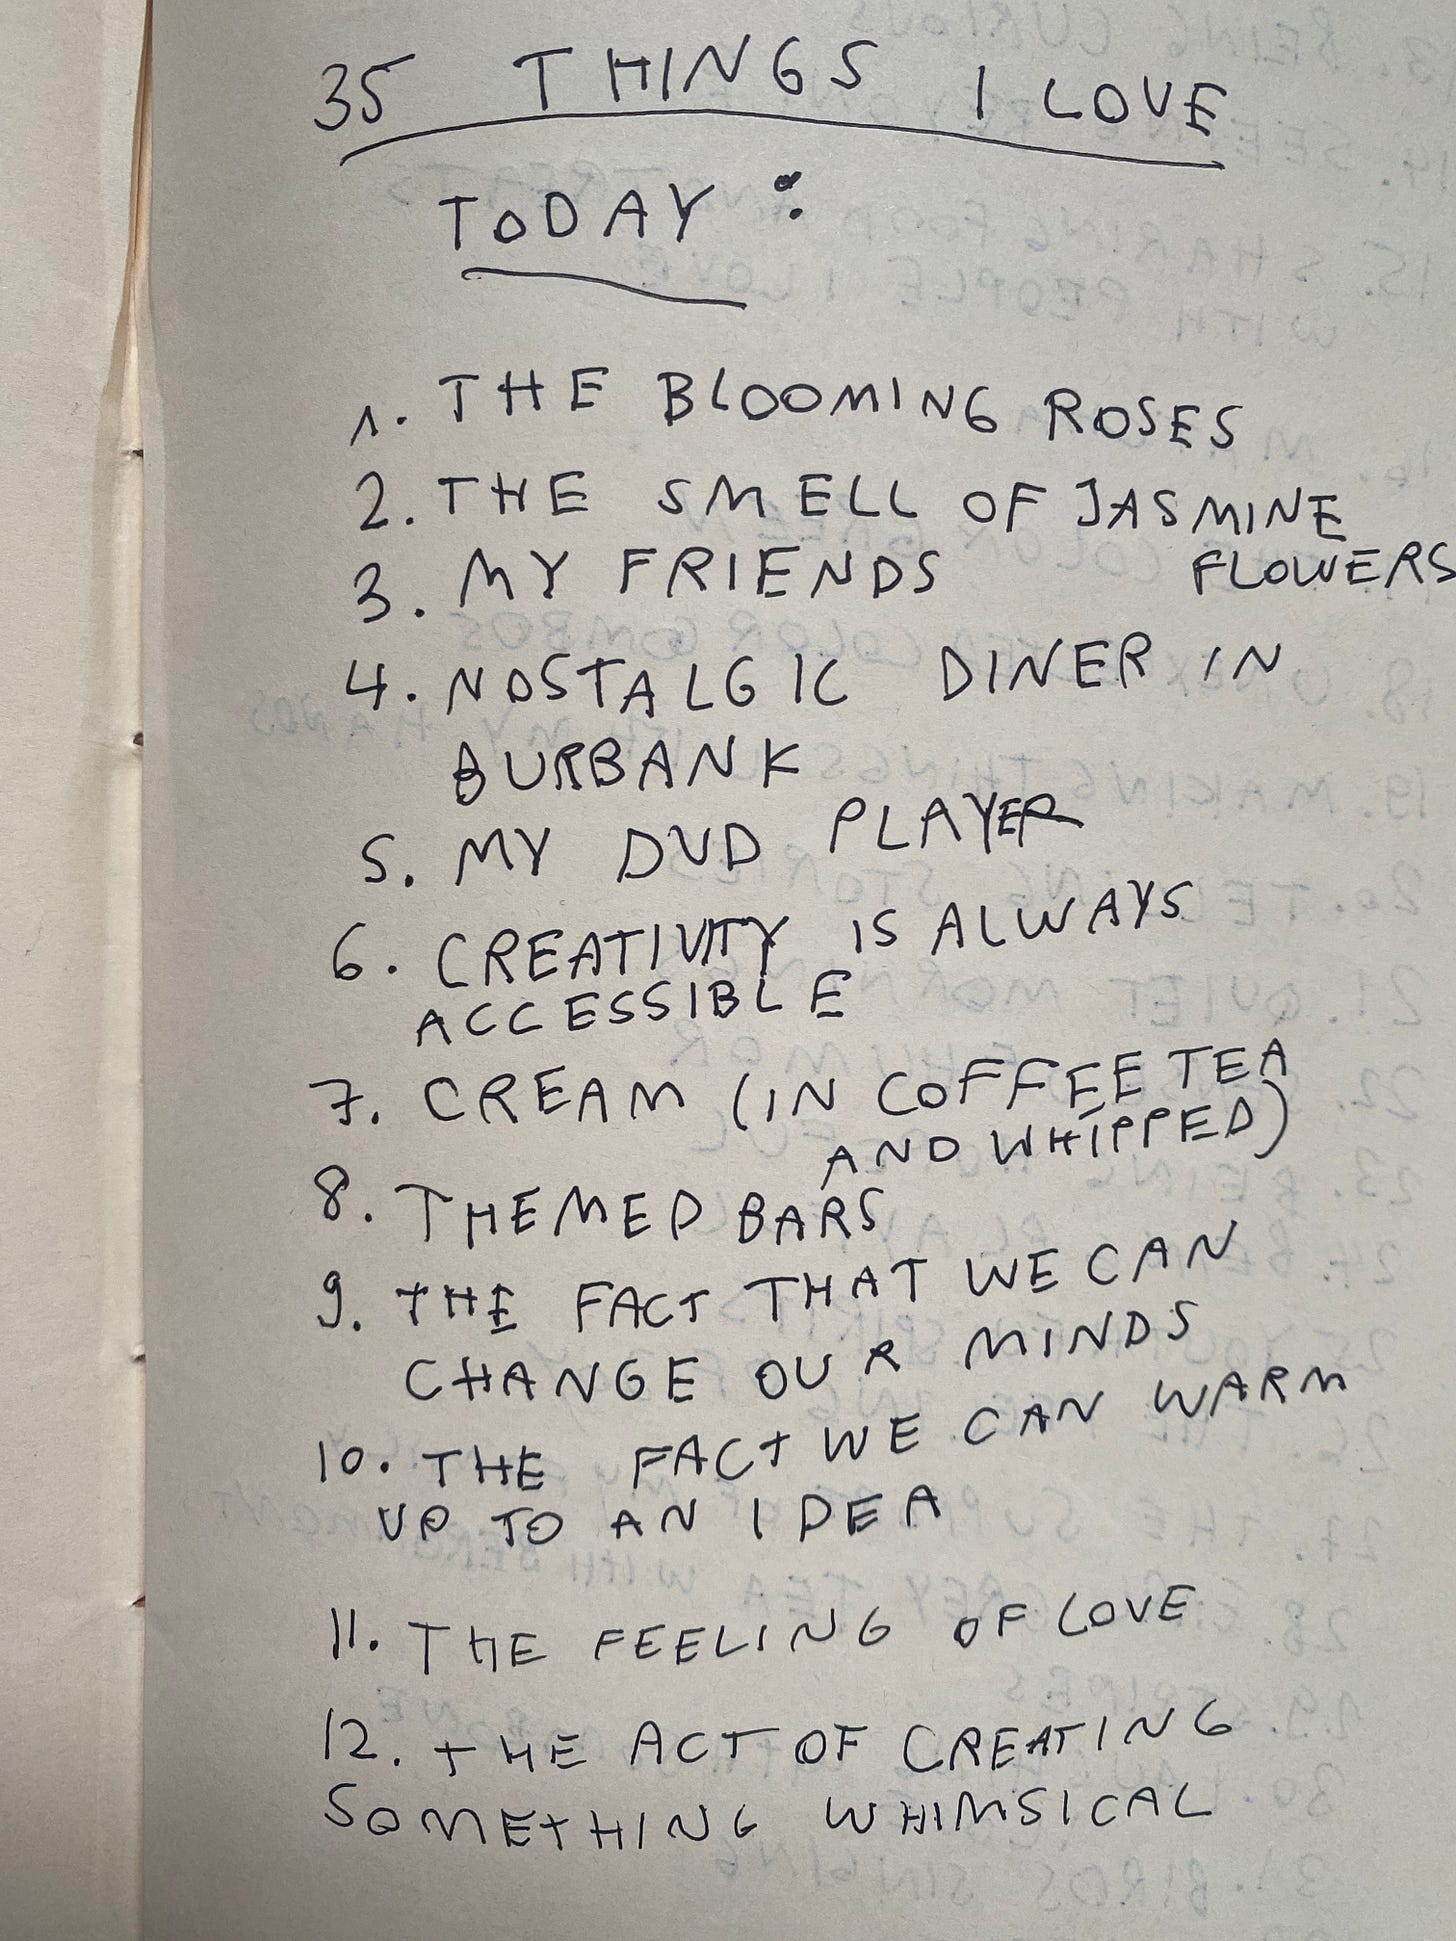 35 THINGS I LOVE
TODAY:
1. THE BLOOMING ROSES
2. THE SMELL OF JASMINE
FLOWERS
3. MY FRIENDS
4. NOSTALGIC DINER IN
BURBANK
5. MY DVD PLAYER
6. CREATIVITY IS ALWAYS
ACCESSIBLE
7. CREAM (IN COFFEE TEA
AND WHIPPED)
8. THEMED BARS
9. THE FACT THAT WE CAN
CHANGE OUR MINDS
10. THE FACT WE CAN WARM
UP TO AN IDEA
11. THE FEELING OF LOVE
12. THE ACT OF CREATING
SOMETHING WHIMSICAL